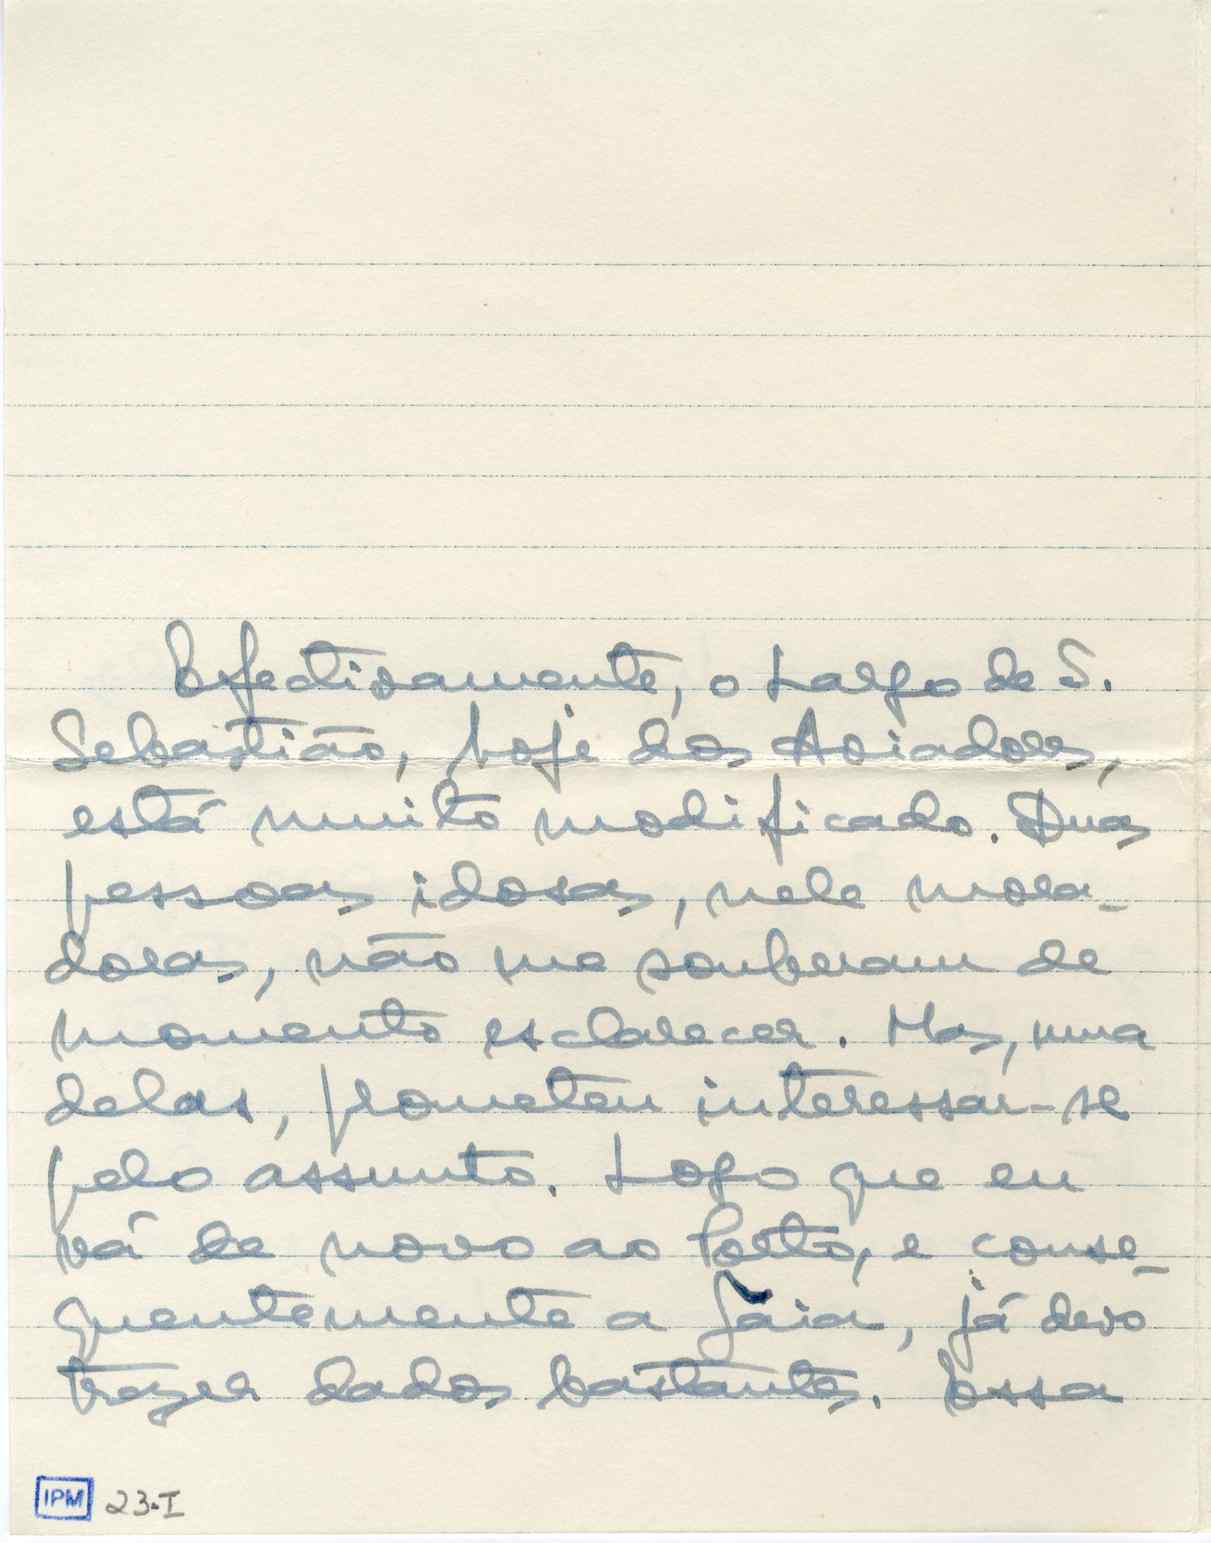 Efectivamente, o Largo de S.
Sebastião, hoje dos Aviadores,
está muito modificado. Duas
pessoas idosas, nele mora-
doras, não me souberam de
momento esclarecer. Mas, uma
delas, prometeu interessar-se
pelo assunto. Logo que eu
vá de novo ao Porto, e conse-
quentemente a Gaia, já devo
trazer dados bastantes. Essa
IPM 23-I